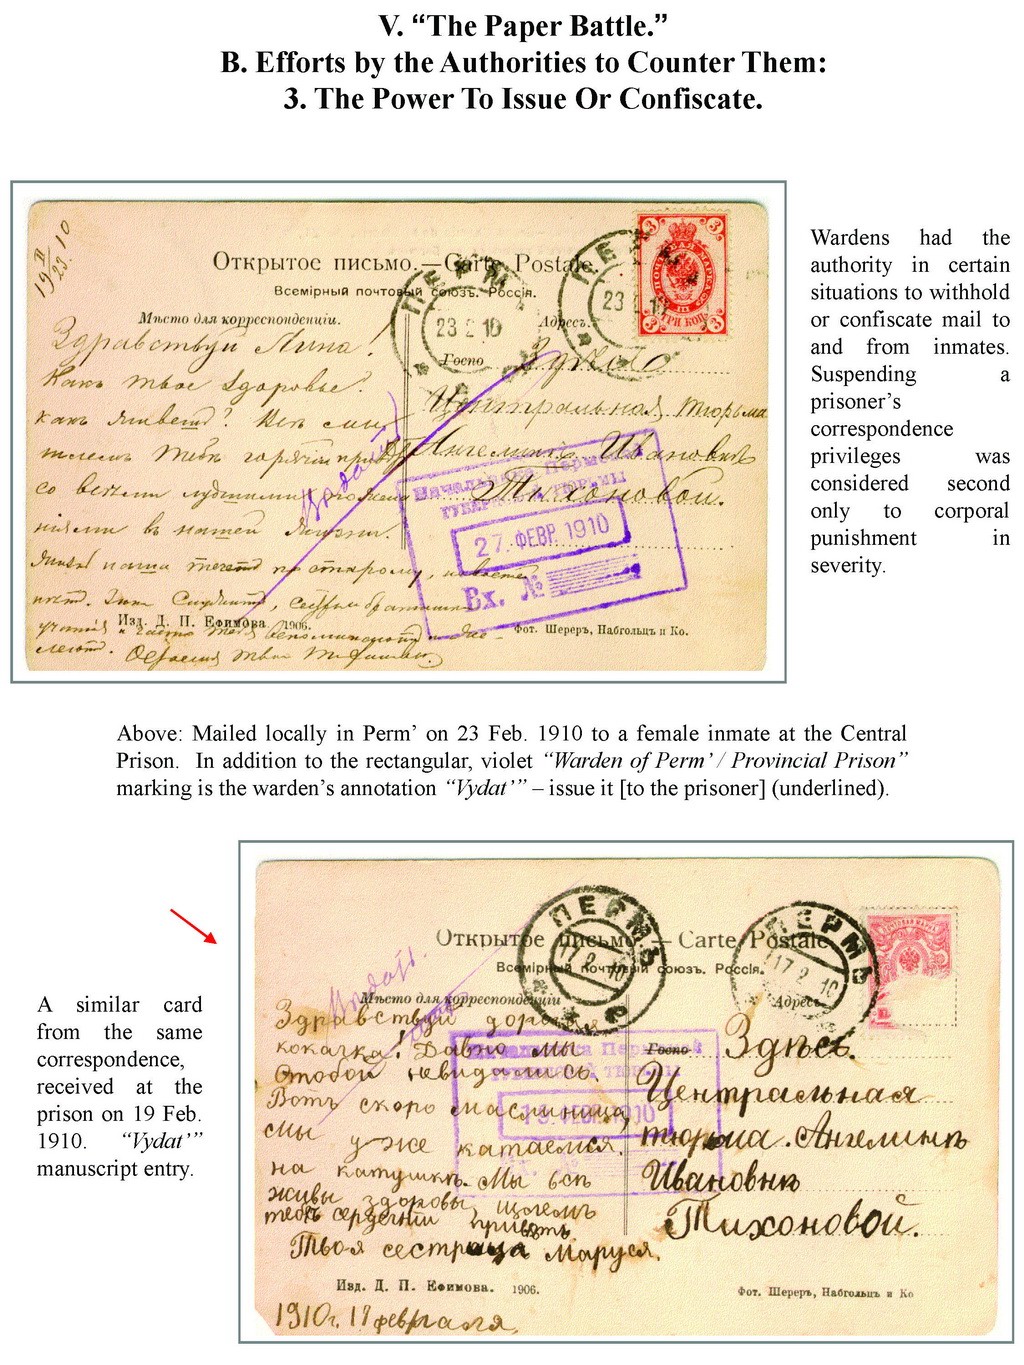 V. “The Paper Battle.”
B. Efforts by the Authorities to Counter Them:
3. The Power To Issue Or Confiscate.
19 II/23. 10
Открытое письмо.—Carte Postale.
Всемірный почтовый союзъ. Россія.
Мѣсто для корреспонденціи.
Адресъ.
Здравствуй Лина!
Какъ твое здоровье?
какъ живешь?
со всѣми лучшими
въ нашей жизни.
наша течетъ по старому,
ПЕРМЬ
23 2 10
ПЕРМЬ
23 2 10
3 3
ПОЧТОВАЯ МАРКА
ТРИ КОП.
3 3
Госпо
Здѣсь
Центральная тюрьма
Ангелинѣ Ивановнѣ
Тихоновой.
Выдать
Начальника Пермской
губернск. тюрьмы
27. ФЕВР. 1910
Вх. №
Изд. Д. П. Ефимова 1906.
Фот. Шереръ, Набгольцъ и Ко.
Wardens had the
authority in certain
situations to withhold
or confiscate mail to
and from inmates.
Suspending a
prisoner’s
correspondence
privileges was
considered second
only to corporal
punishment in
severity.
Above: Mailed locally in Perm’ on 23 Feb. 1910 to a female inmate at the Central
Prison. In addition to the rectangular, violet “Warden of Perm’ / Provincial Prison”
marking is the warden’s annotation “Vydat’” – issue it [to the prisoner] (underlined).
A similar card
from the same
correspondence,
received at the
prison on 19 Feb.
1910. “Vydat’”
manuscript entry.
Открытое письмо.—Carte Postale
Всемірный почтовый союзъ. Россія.
Мѣсто для корреспонденціи
Адресъ.
ПЕРМЬ
17 2 10
ПЕРМЬ
17 2 10
ПОЧТОВАЯ МАРКА
Выдать.
Здравствуй дорогая
кокачка! Давно мы
стобой невидались.
Вотъ скоро масляница,
мы уже катаемся
на катушкѣ. Мы всѣ
живы здоровы, шлемъ
тебѣ сердечный привѣтъ
Твоя сестрица Маруся.
Госпо
Здѣсь.
Центральная
тюрьма. Ангелинѣ
Ивановнѣ
Тихоновой.
Начальника Пермской
губернск. тюрьмы
19. ФЕВР. 1910
Изд. Д. П. Ефимова. 1906.
Фот. Шереръ, Набгольцъ и Ко
1910г. 17 февраля.